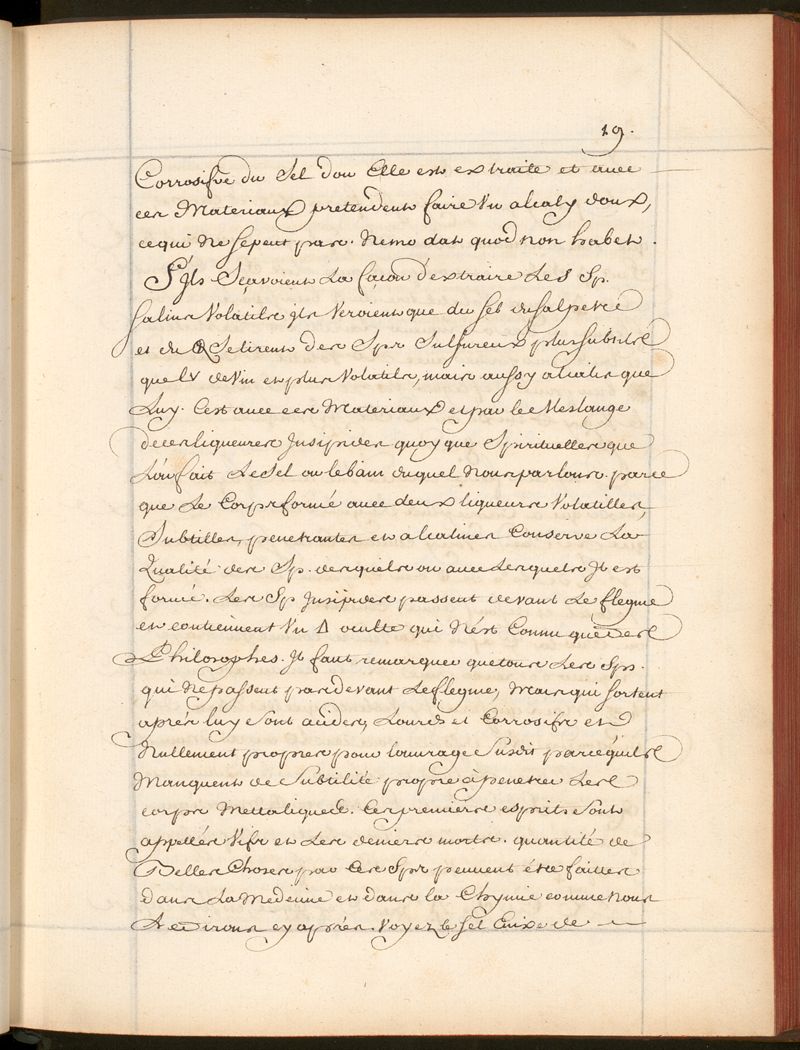 19.
Corrosifve du Sel d'ou Elle est extraite et avec
ces Materiaux pretendent faire Un alcaly doux,
ce qui Ne se peut pas. Nemo dat quod non habet.
S'Jls Sçavoient La façon d'extraire Les Sp.
salins Volatils jls Veroient que du sel du salpetre
et du Se tirent des Sprs Sulfureux plus subtile
que de Vin et plus Volatils, mais aussy alcalis que
Luy. C'est avec ces Materiaux et par le Meslange
de ces liqueures Jnsipides quoy que Spirituelles que
L'on fait Le Sel ou le bain duquel Nous parlons. parce
que Le Corps formé avec deux liqueurs Volatilles,
Subtilles, penetrantes et alcalines Conserve La
Qualité des Sp. desquels ou avec Lesquels Jl est
formé. Les Sp Jnsipides passent devant Le flegme
et contiennent Un Δ oculte qui N'est Connu que des
Philosophes. Jl faut remarquer que tous Les Sps.
qui Ne passent pas devant Le flegme, Mais qui sortent
aprés luy Sont acides, Lourds et Corrosifs et
Nullement propres pour l'ouvrage Susdit parcequ'ils
Manquent de Subtilité propre à penetrer Les
corps Mettaliques. Ces premiers esprits Sont
appellés Vifs et Les derniers morts. quantité de
Belles Choses par Ces Sprs peuvent étre faittes
dans La Medecine et dans la Chymie comme Nous
Le Dirons cy aprés. Voyez le sel Enixe de